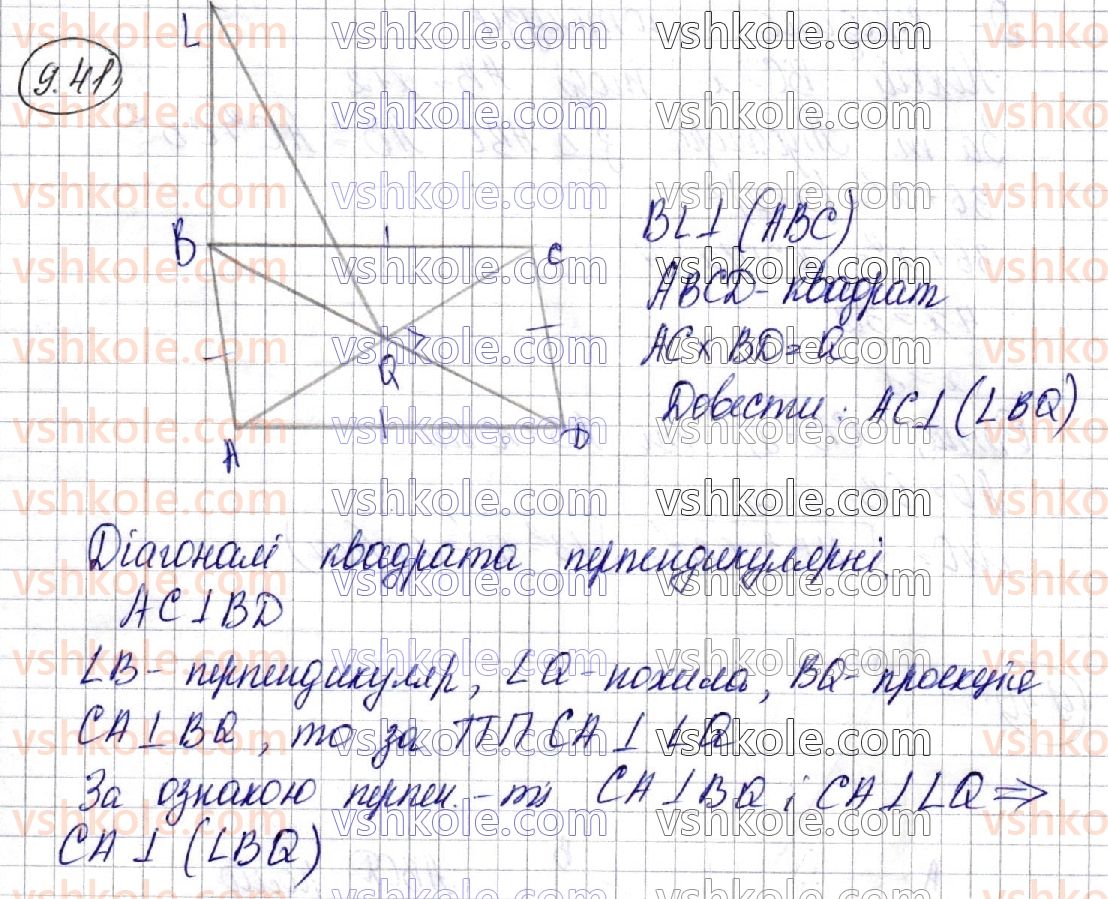 9.41
L
B
C
Q
A
D
BL⊥(ABC)
ABCD - квадрат
AC × BD = Q
Довести: AC⊥(LBQ)
Діагоналі квадрата перпендикулярні.
AC⊥BD
LB - перпендикуляр, LQ - похила, BQ - проекція
CA⊥BQ, то за ТТП CA⊥LQ
За ознакою перпен.-ті CA⊥BQ і CA⊥LQ ⇒
CA⊥(LBQ)
vshkole.com